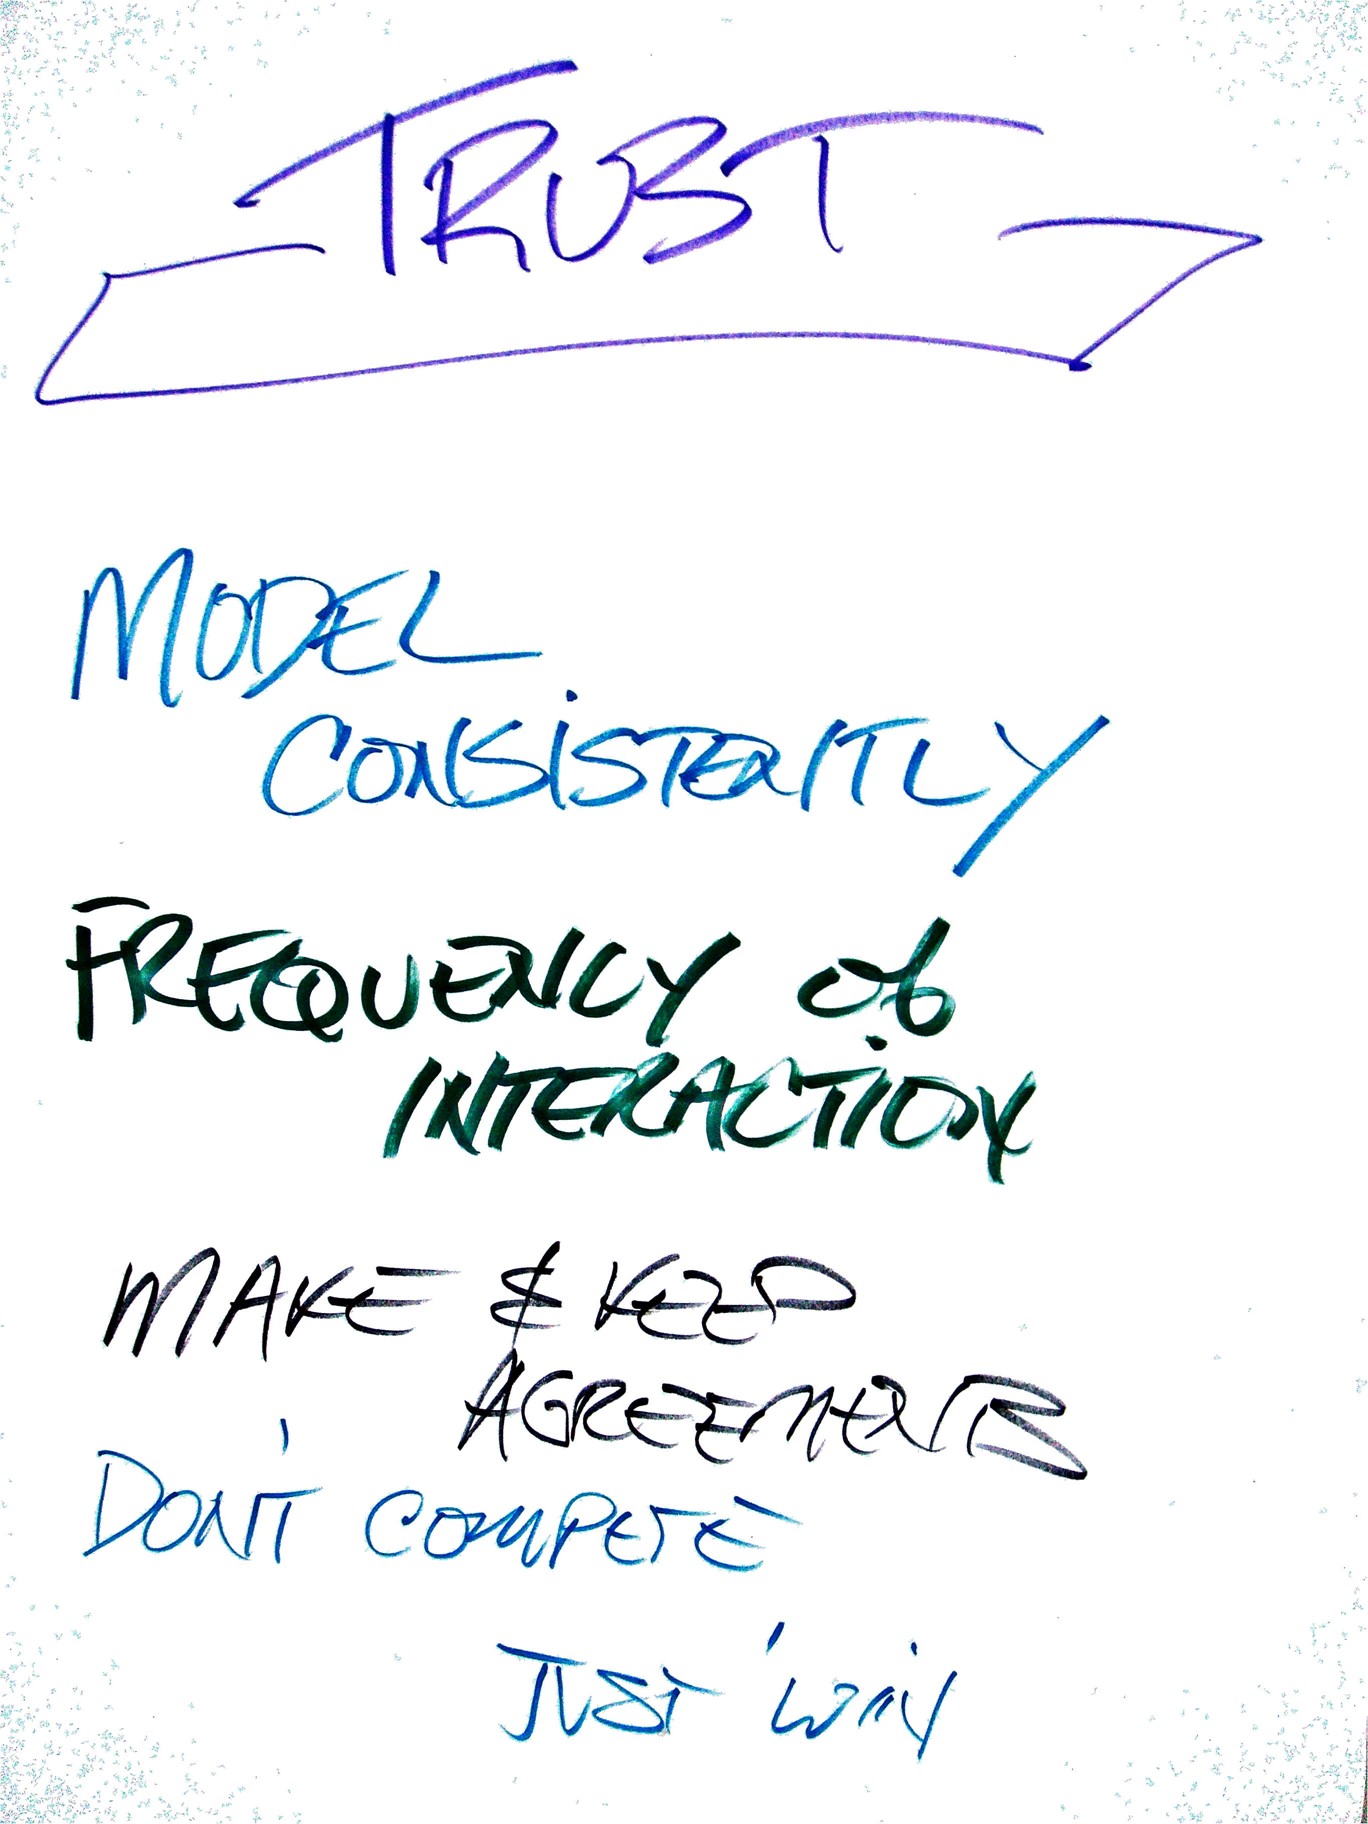 TRUST
MODEL
CONSISTENTLY
FREQUENCY of
INTERACTION
MAKE & KEEP
AGREEMENTS
DON'T COMPETE
JUST 'WIN